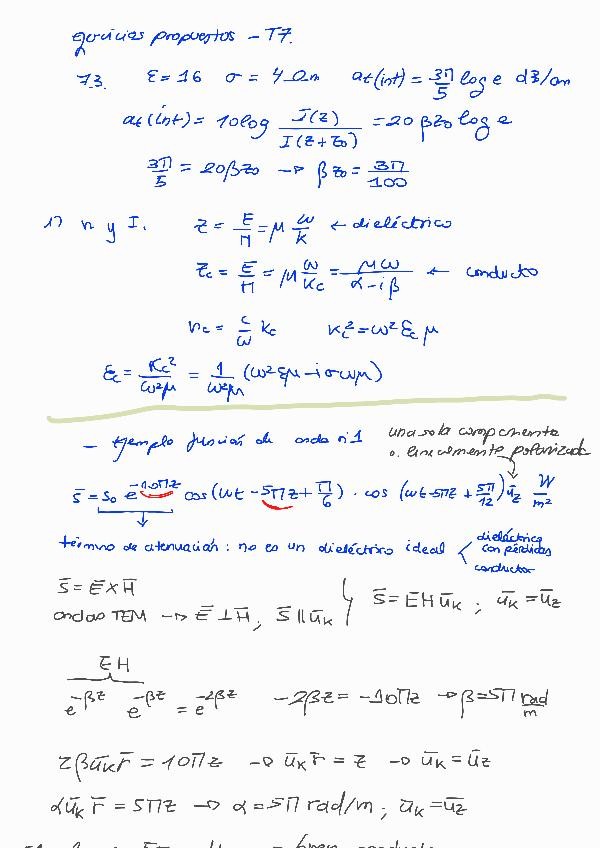 ejercicios propuestos - T7.
7.3. ε=16 σ = 4 Ωm at(int) = 3π/5 log e dB/cm
at(int) = 10log I(z)/I(z+z₀) = 20 βz₀ log e
3π/5 = 20βz₀ → βz₀ = 3π/100
1) n y I. z = E/H = μ ω/k ← dieléctrico
zc = E/H = μ ω/kc = μω/(α-iβ) ← conducto
nc = c/ω kc kc² = ω² εc μ
εc = kc²/ω²μ = 1/ω²μ (ω²εμ - iσωμ)
- ejemplo función de onda nº1 una sola componente
o. linealmente polarizada
s̄ = s₀ e^-10πz cos(ωt - 5πz + π/6) · cos (ωt - 5πz + 5π/12) ūz W/m²
término de atenuación: no es un dieléctrico ideal < dieléctrico con pérdidas
conductor
S̄ = Ē x H̄
ondas TEM → Ē ⊥ H̄, S̄ ∥ ūk S̄ = EH ūk ; ūk = ūz
EH
e^-βz e^-βz = e^-2βz -2βz = -10πz → β = 5π rad/m
2βūk r̄ = 10πz → ūk r̄ = z → ūk = ūz
αūk r̄ = 5πz → α = 5π rad/m ; ūk = ūz